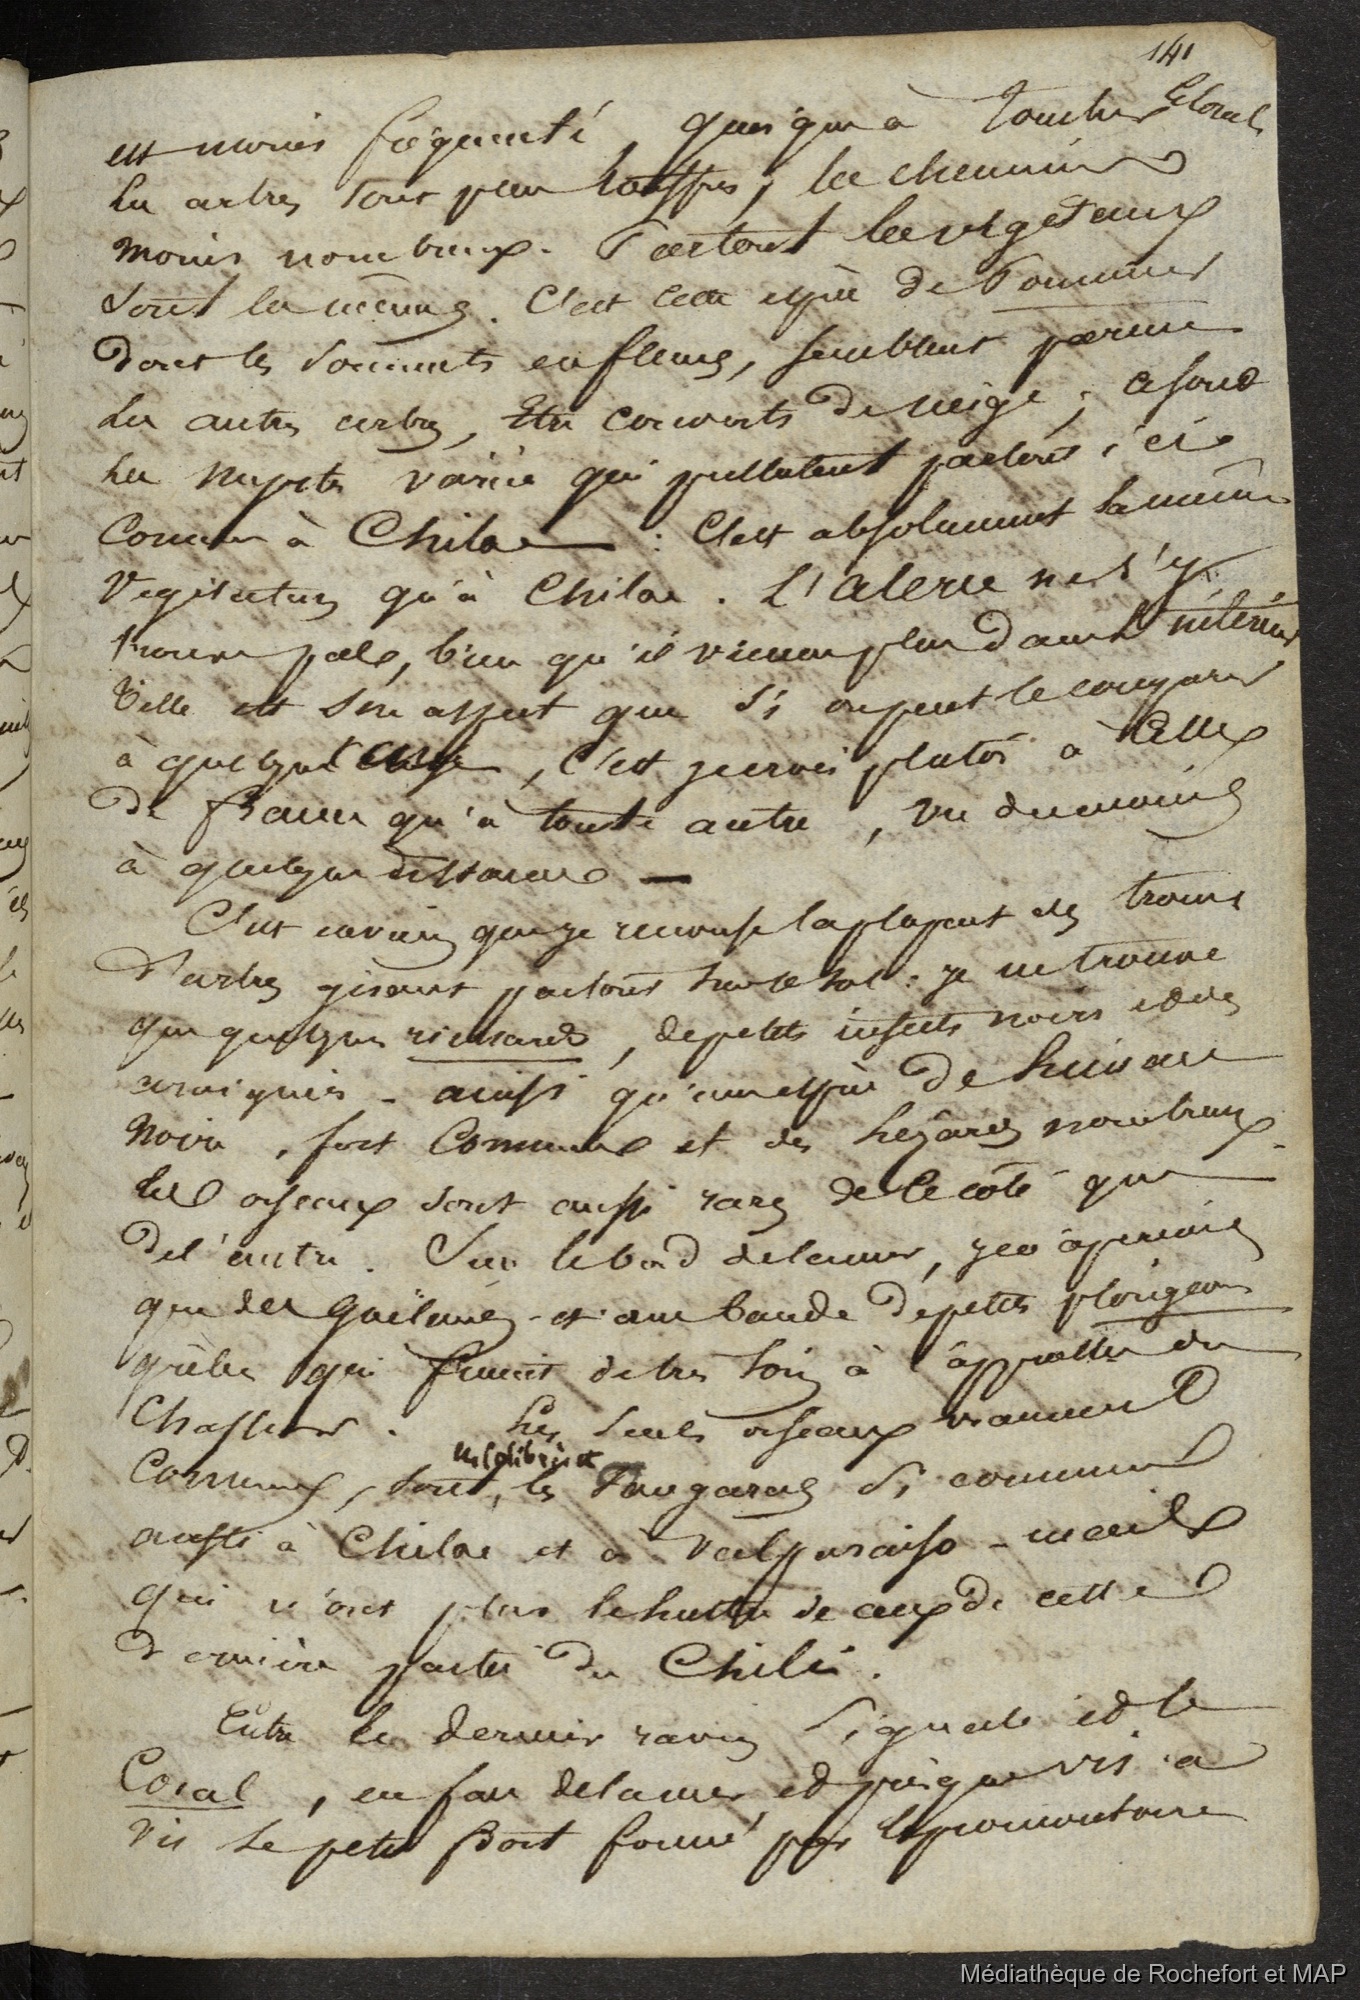 141
est moins fréquenté, quoique à toucher le Coral.
Les arbres sont peu touffus, les chemins
moins nombreux. Partout les végétaux
sont les mêmes. C'est cette espèce de Pommier
dont les sommets en fleurs, semblent parmi
les autres arbres, être couverts de neige ; à fond
les myrtes variés qui pullulent partout, ici
comme à Chiloe : C'est absolument la même
végétation qu'à Chiloe. L' ne s'y
trouve pas, bien qu'il vienne plus dans l'intérieur
Telle est son aspect que si on peut le comparer
à quelque chose, c'est je crois plutôt à celle
de France qu'à toute autre, vu du moins
à quelque distance —
C'est en vain que je renverse la plupart des troncs
d'arbres gisants partout sur le sol : je ne trouve
que quelques , de petits insectes noirs et des
araignées - ainsi qu'une espèce de limace
noire, fort commune et des lézards nombreux.
Les oiseaux sont aussi rares de ce côté que
de l'autre. Sur le bord de la mer, je n'aperçois
que des Goëlands - et une bande de petits plongeons
grèbes qui fuient de très loin à l'approche du
Chasseur. Les seuls oiseaux vraiment
communs, sont, les si communs
les colibris et
aussi à Chiloe et à Valparaiso - mais
qui n'ont plus le lustre de ceux de cette
dernière partie du Chili.
Entre le dernier ravin signalé et le
Coral, en face de la mer et presque vis à
vis le petit Port formé par le promontoire
Médiathèque de Rochefort et MAP